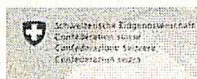 Schweizerische Eidgenossenschaft
Confédération suisse
Confederazione Svizzera
Confederaziun svizra